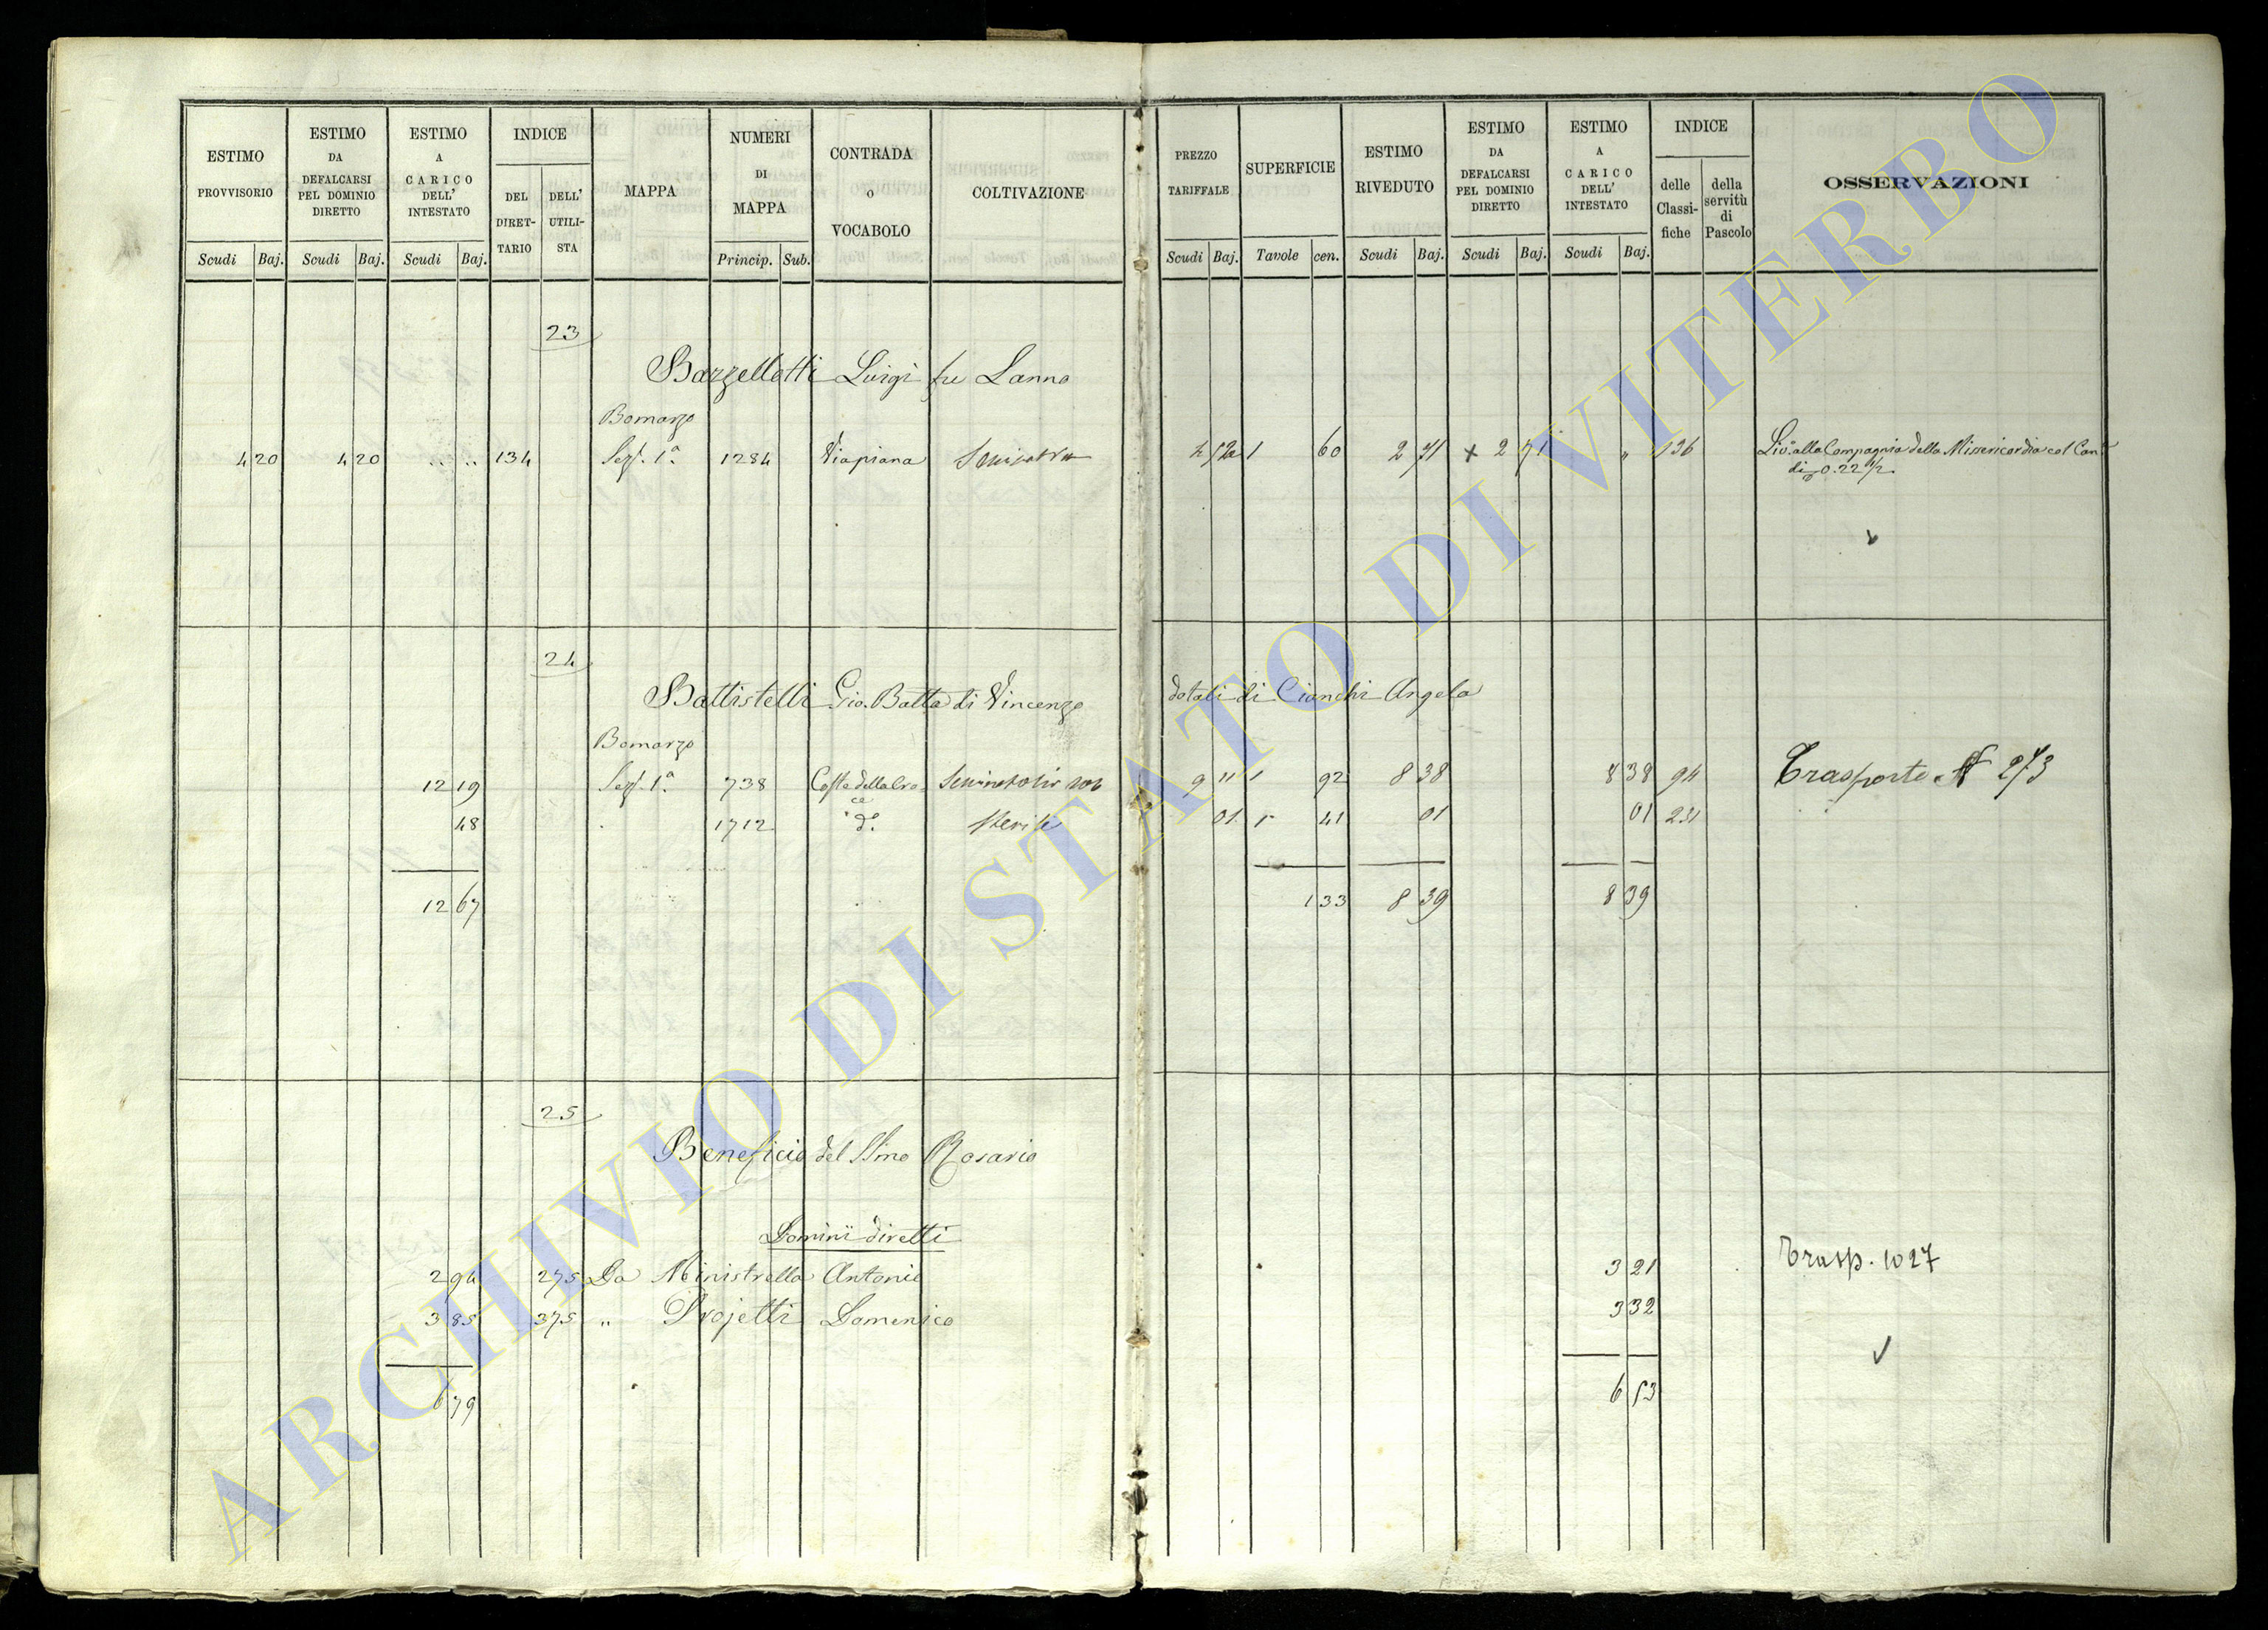 ESTIMO PROVVISORIO
Scudi Baj.
ESTIMO DA DEFALCARSI PEL DOMINIO DIRETTO
Scudi Baj.
ESTIMO A CARICO DELL' INTESTATO
Scudi Baj.
INDICE
DEL DIRET-TARIO
DELL' UTILI-STA
MAPPA
NUMERI DI MAPPA
Princip. Sub.
CONTRADA o VOCABOLO
COLTIVAZIONE
PREZZO TARIFFALE
Scudi Baj.
SUPERFICIE
Tavole cen.
ESTIMO RIVEDUTO
Scudi Baj.
ESTIMO DA DEFALCARSI PEL DOMINIO DIRETTO
Scudi Baj.
ESTIMO A CARICO DELL' INTESTATO
Scudi Baj.
INDICE
delle Classi-fiche
della servitù di Pascolo
OSSERVAZIONI
23
Barzellotti Luigi fu Lanno
Bomarzo
4 20 4 20 .. .. 134 Sez. 1ª 1284 Viapiana 1 60 2 71 + 2 71 " 136 Liv. alla Compagnia della Misericordia col Can.
di 0.22 1/2
24
Battistelli Gio. Batta di Vincenzo dotali di Cianchi Angela
Bomarzo
12 19 Sez. 1ª 738 Coste della Cro= 9 11 1 92 8 38 8 38 94 Trasporto N 273
ce
48 1712 dº. sterile 01 " 41 01 01 231
12 67 1 33 8 39 8 39
25
Beneficio del SSmo Rosario
Dominii diretti
2 94 275 Da Ministrella Antonio 3 21 Trasp. 1027
3 85 375 " Projetti Domenico 3 32
6 79 6 53
ARCHIVIO DI STATO DI VITERBO